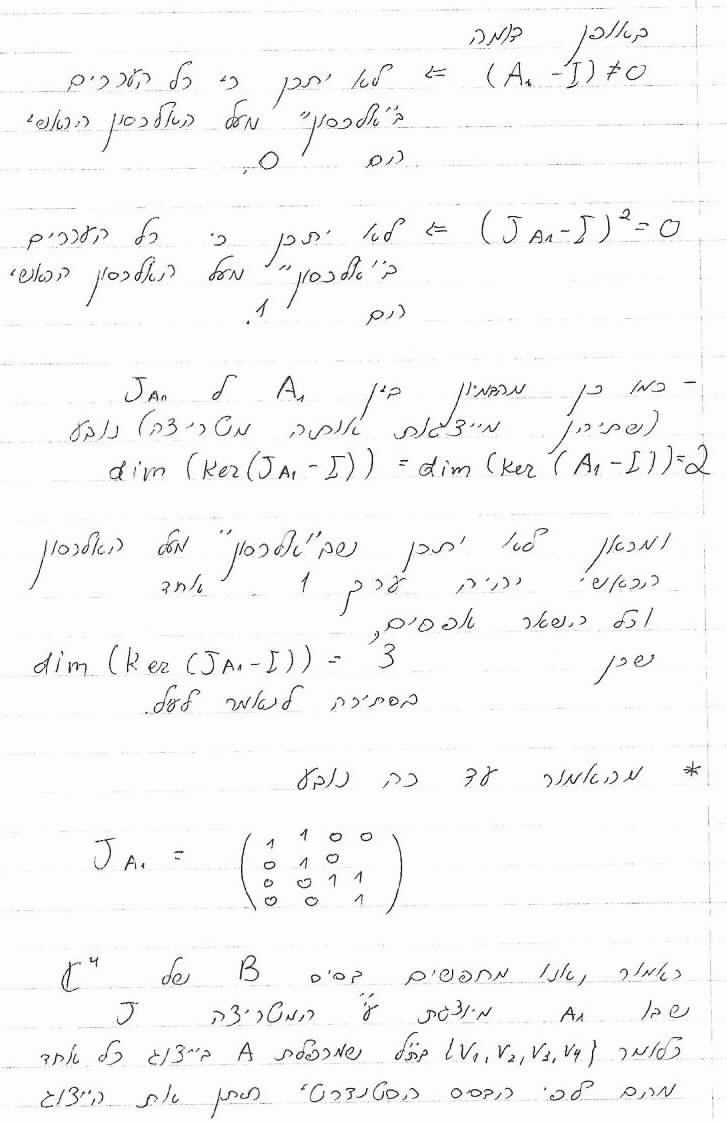 באופן דומה
(A₁ - I) ≠ 0 ⇐ לא יתכן כי כל הערכים
ב"אלכסון" מעל האלכסון הראשי
הם 0.
(J_A₁ - I)² = 0 ⇐ לא יתכן כי כל הערכים
ב"אלכסון" מעל האלכסון הראשי
הם 1.
- כמו כן מהדמיון בין A₁ ל J_A₁
(שתיהן מייצגות אותה מטריצה) נובע
dim (ker(J_A₁ - I)) = dim (ker (A₁ - I)) = 2
ומכאן לא יתכן שב"אלכסון" מעל האלכסון
הראשי יהיה ערך 1 אחד
וכל השאר אפסים,
שכן dim (ker (J_A₁ - I)) = 3
בסתירה לנאמר לעיל.
* מהאמור עד כה נובע
J_A₁ =
1 1 0 0
0 1 0
0 0 1 1
0 0 1
כאמור, אנו מחפשים בסיס B של ℂ⁴
שבו A₁ מיוצגת ע"י המטריצה J
כלומר {v₁, v₂, v₃, v₄} שמכפלת A בייצוג כל אחד
מהם לפי הבסיס הסטנדרטי תיתן את הייצוג